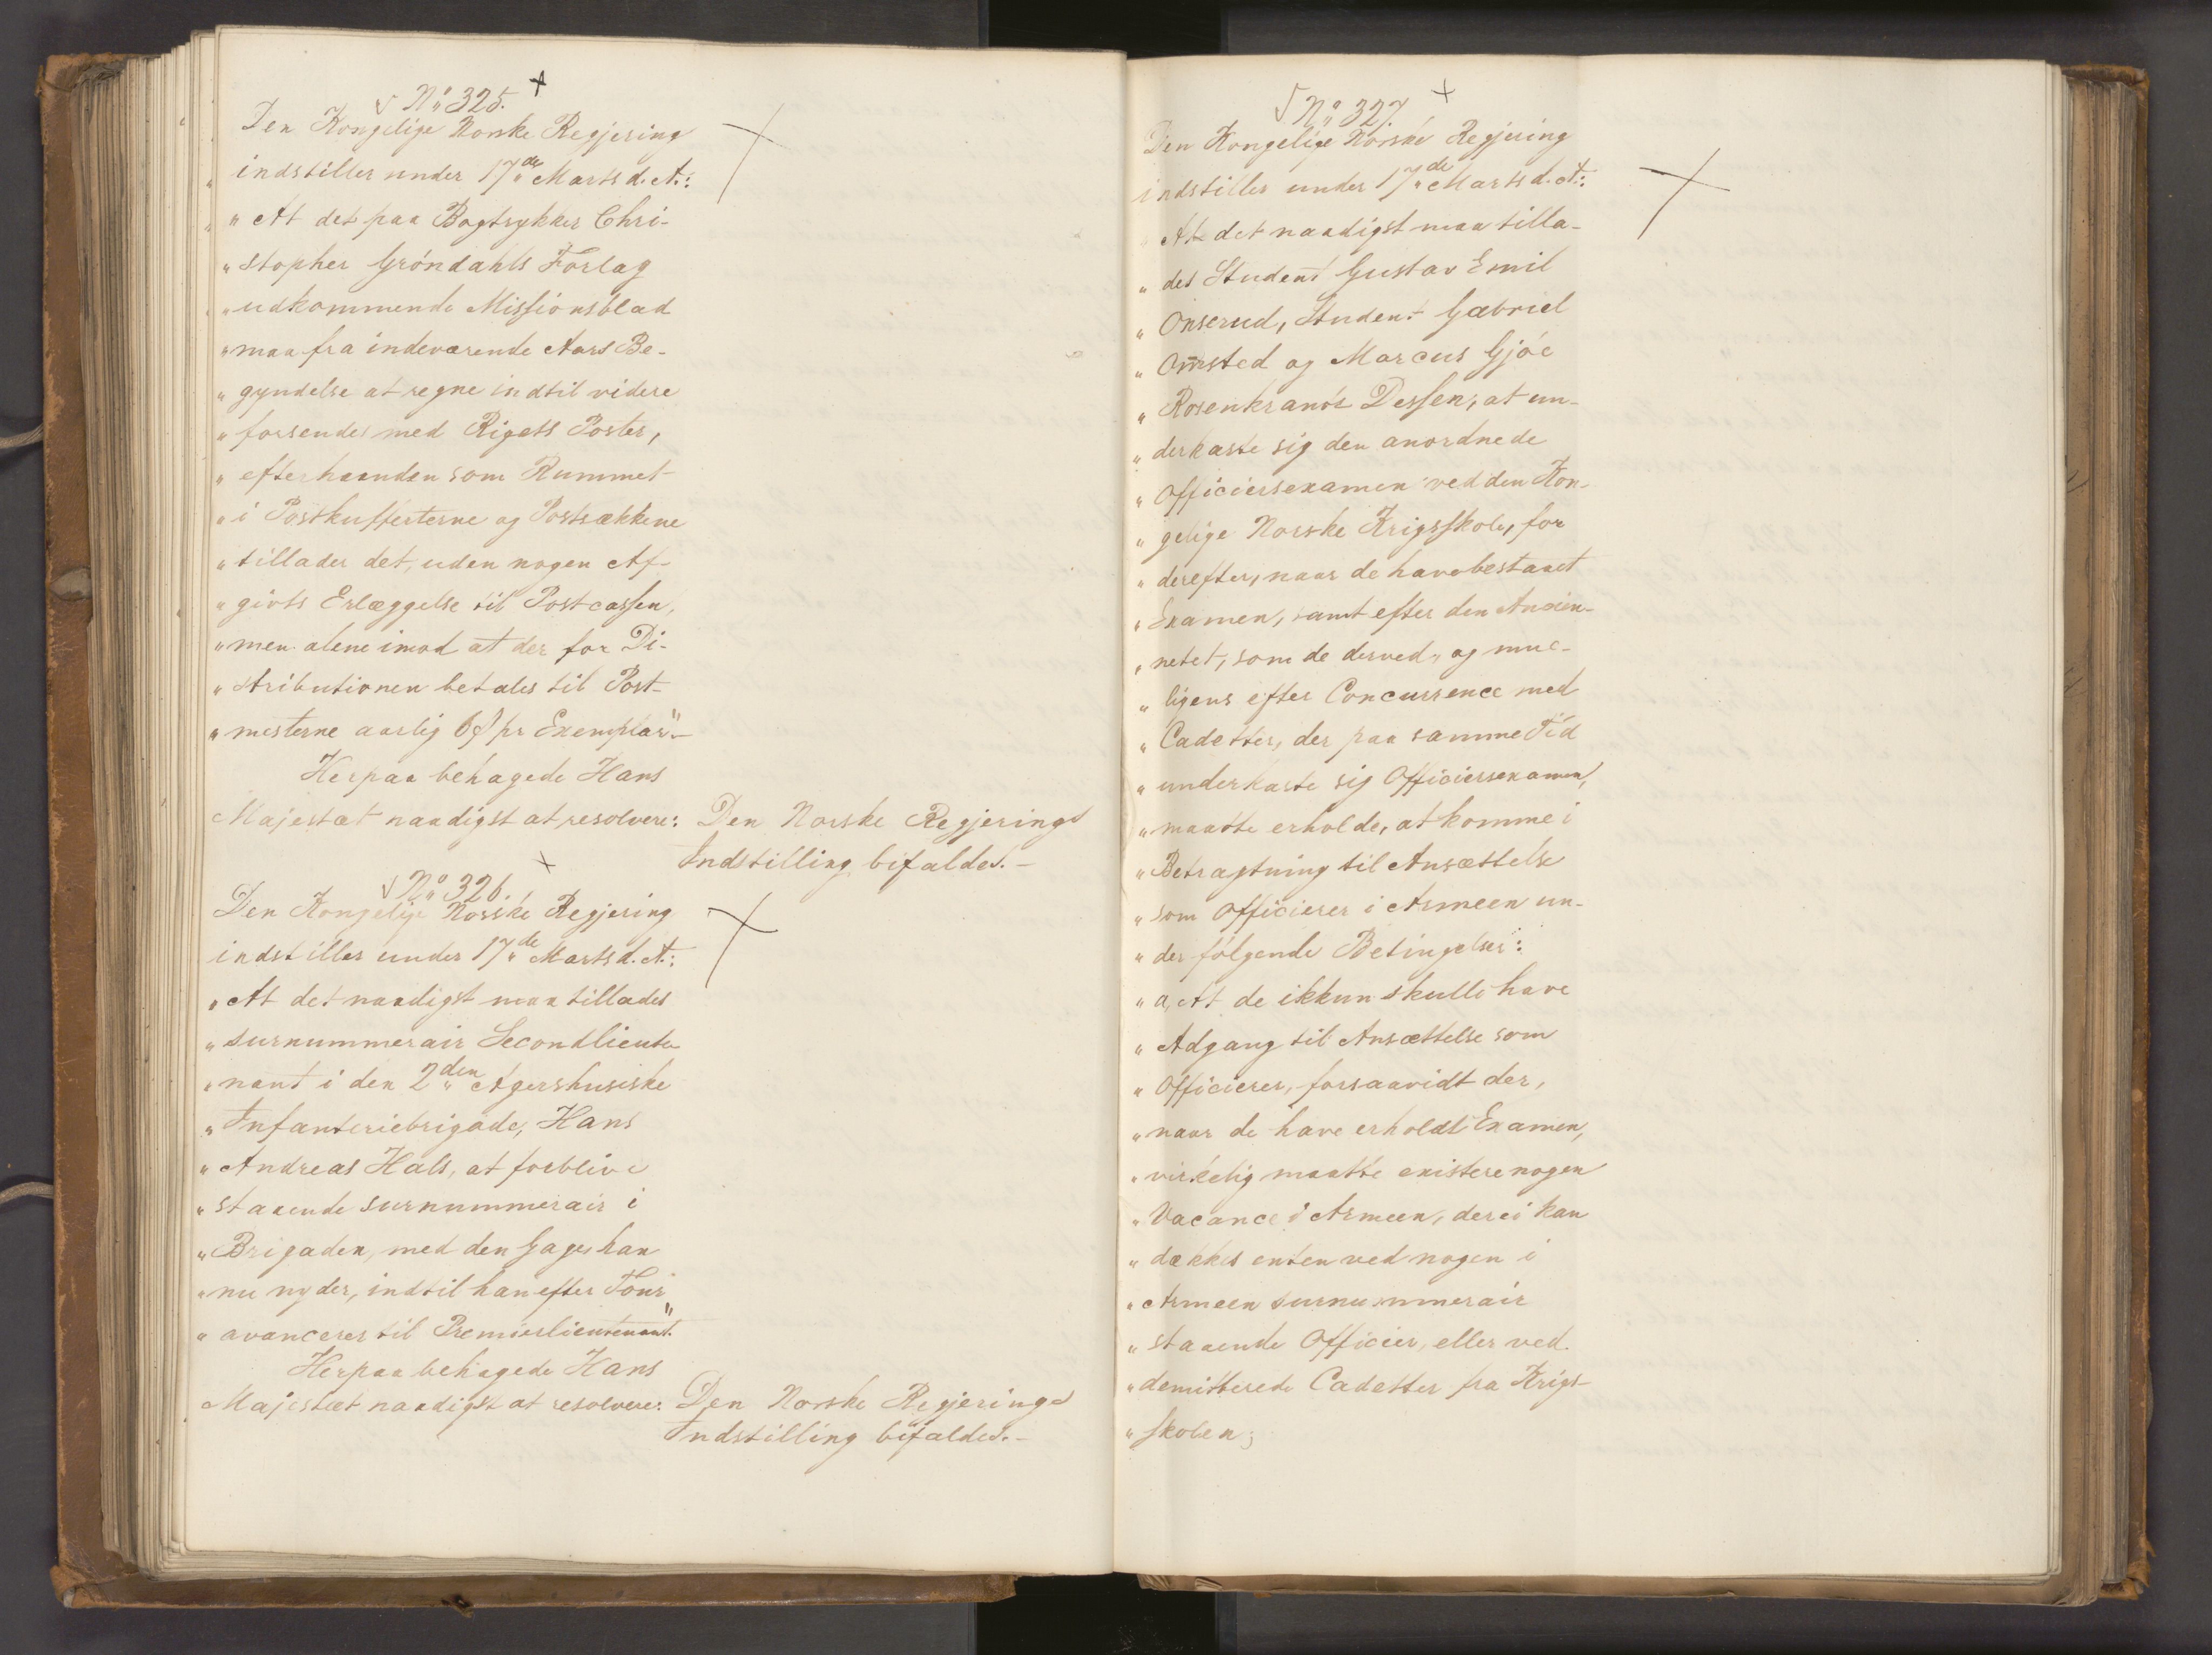 √ No 325. +
Den Kongelige Norske Regjering
indstiller under 17de Marts d. A.:
„ At det paa Bogtrykker Chri-
„ stopher Gröndahls Forlag
„ udkommende Missionsblad
„ maa fra indeværende Aars Be-
„ gyndelse at regne indtil videre
„ forsendes med Rigets Poster,
„ efterhaanden som Rummet
„ i Postkufferterne og Postsækkene
„ tillader det, uden nogen Af-
„ givts Erlæggelse til Postcassen,
„ men alene imod at der for Di-
„ stributionen betales til Post-
„ mesterne aarlig 6 ß pr Exemplar".-
Herpaa behagede Hans
Majestæt naadigst at resolvere: Den Norske Regjerings
Indstilling bifaldes.-
√ No 326. +
Den Kongelige Norske Regjering
indstiller under 17de Marts d. A.:
„ At det naadigst maa tillades
„ surnummerair Secondlieute-
„ nant i den 2den Agershusiske
„ Infanteriebrigade, Hans
„ Andreas Hals, at forblive
„ staaende surnummerair i
„ Brigaden, med den Gage, han
„ nu nyder, indtil han efter Tour
„ avancerer til Premierlieutenant."
Herpaa behagede Hans
Majestæt naadigst at resolvere: Den Norske Regjerings
Indstilling bifaldes.-
√ No 327. +
Den Kongelige Norske Regjering
indstiller under 17de Marts d. A.:
„ At det naadigst maa tilla-
„ des Student Gustav Emil
„ Onserud, Student Gabriel
„ Omsted og Marcus Gjöe
„ Rosenkrantz Dessen, at un-
„ derkaste sig den anordnede
„ Officiersexamen ved den Kon-
„ gelige Norske Krigsskole, for
„ derefter, naar de have bestaaet
„ Examen, samt efter den Ancien-
„ netet, som de derved, og mue-
„ ligens efter Concurrence med
„ Cadetter, der paa samme Tid
„ underkaste sig Officiersexamen,
„ maatte erholde, at komme i
„ Betragtning til Ansættelse
„ som Officierer i Armeen un-
„ der følgende Betingelser:
„ a, At de ikkun skulle have
„ Adgang til Ansættelse som
„ Officierer, forsaavidt der,
„ naar de have erholdt Examen,
„ virkelig maatte existere nogen
„ Vacance i Armeen, der ei kan
„ dækkes enten ved nogen i
„ Armeen surnummerair
„ staaende Officier, eller ved
„ demitterede Cadetter fra Krigs-
„ skolen;